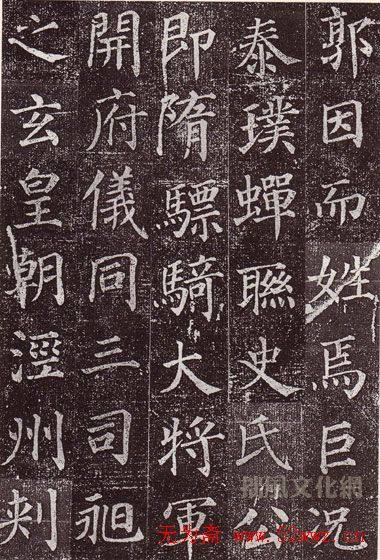 郭因而姓焉巨況
泰璞蟬聯史氏公
即隋驃騎大將軍
開府儀同三司昶
之玄皇朝涇州刾
文化網
无为斋